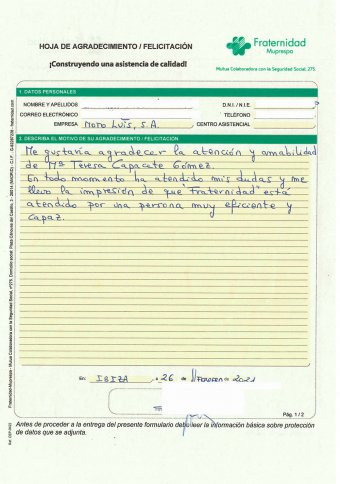 HOJA DE AGRADECIMIENTO / FELICITACIÓN
¡Construyendo una asistencia de calidad!
Fraternidad
Muprespa
Mutua Colaboradora con la Seguridad Social, 275
1. DATOS PERSONALES
NOMBRE Y APELLIDOS
D.N.I. / N.I.E.
CORREO ELECTRÓNICO
TELÉFONO
EMPRESA Moto Luis, S.A.
CENTRO ASISTENCIAL
2. DESCRIBA EL MOTIVO DE SU AGRADECIMIENTO / FELICITACIÓN
Me gustaría agradecer la atención y amabilidad
de Mª Teresa Capacete Gómez.
En todo momento ha atendido mis dudas y me
llevo la impresión de que "fraternidad" está
atendido por una persona muy eficiente y
capaz.
En IBIZA, a 26 de Febrero de 2021
Pág. 1 / 2
Antes de proceder a la entrega del presente formulario debe leer la información básica sobre protección
de datos que se adjunta.